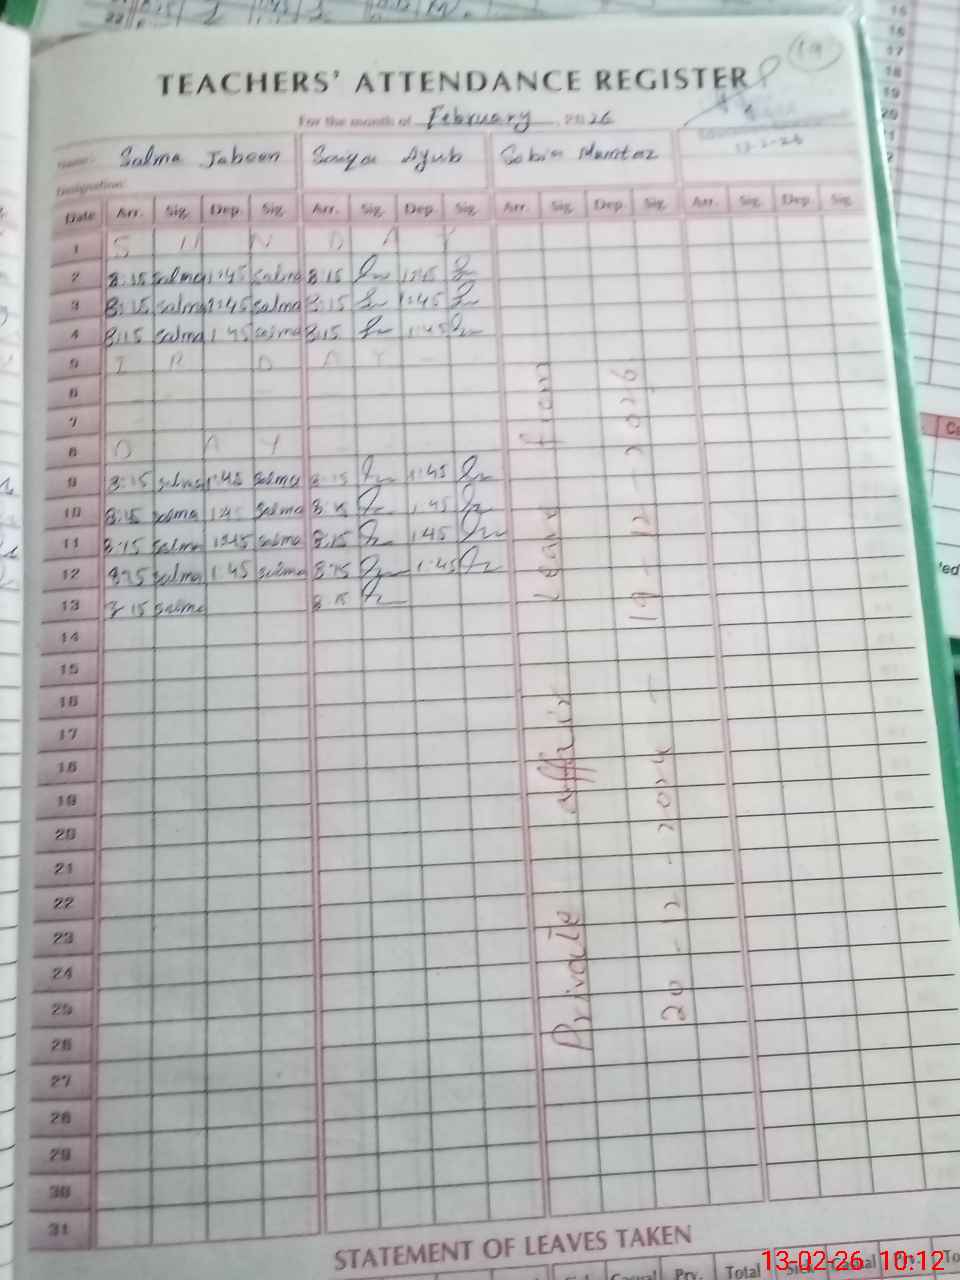 TEACHERS' ATTENDANCE REGISTER
19
For the month of February 2026
Name: Salma Jabeen Saiqa Ayub Sobia Mumtaz
Designation:
Date Arr. Sig. Dep. Sig. Arr. Sig. Dep. Sig. Arr. Sig. Dep. Sig. Arr. Sig. Dep. Sig.
1 S U N D A Y
2 8:15 Salma 1:45 Salma 8:15 1:45
3 8:15 Salma 1:45 Salma 8:15 1:45
4 8:15 Salma 1:45 Salma 8:15 1:45
5 I R D A Y
6
7
8 D A Y
9 8:15 Salma 1:45 Salma 8:15 1:45
10 8:15 Salma 1:45 Salma 8:15 1:45
11 8:15 Salma 1:45 Salma 8:15 1:45
12 8:15 Salma 1:45 Salma 8:15 1:45
13 8:15 Salma 8:15
14
15
16
17
18
19
20
21
22
23
24
25
26
27
28
29
30
31
Private affair Leave from
20-12-2024 - 19-12-2026
STATEMENT OF LEAVES TAKEN
Casual Prv. Total Sick Casual Prv. To
13-02-26 10:12